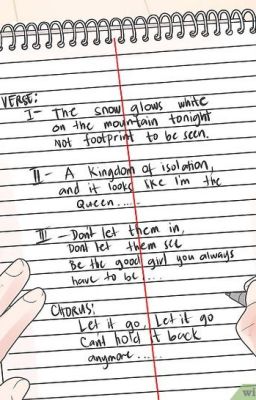 VERSE:
I - The snow glows white
on the mountain tonight
Not footprint to be seen.
II - A Kingdom of isolation,
and it looks like I'm the
Queen.....
III - Dont let them in,
Dont let them see
Be the good girl you always
have to be....
CHORUS:
Let it go, Let it go
Cant hold it back
anymore.....
wi